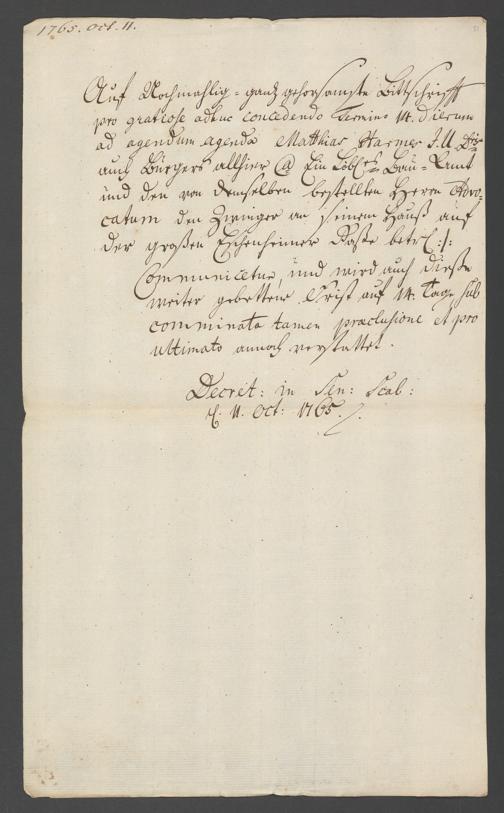 1765. Oct. 11.
Auf Nochmahlig-ganz gehorsamste Bittschrifft
pro gratiose adhuc concedendo Termino 14. dierum
ad agendum agenda Matthias Harmes J. U.
auch Bürgers allhier Ein Löbl. Bau-Amt
und den von demselben bestellten Herrn Advo-
catum den Zwinger an seinem Hauß auf
der großen Eschenheimer Gaße betr.
Communicetur, und wird auch dieße
weiter gebettene Frist auf 14. Tage sub
comminata tamen praeclusione et pro
ultimato annoch verstattet.
Decret: in Sen: Scab:
d. 11. Oct: 1765.